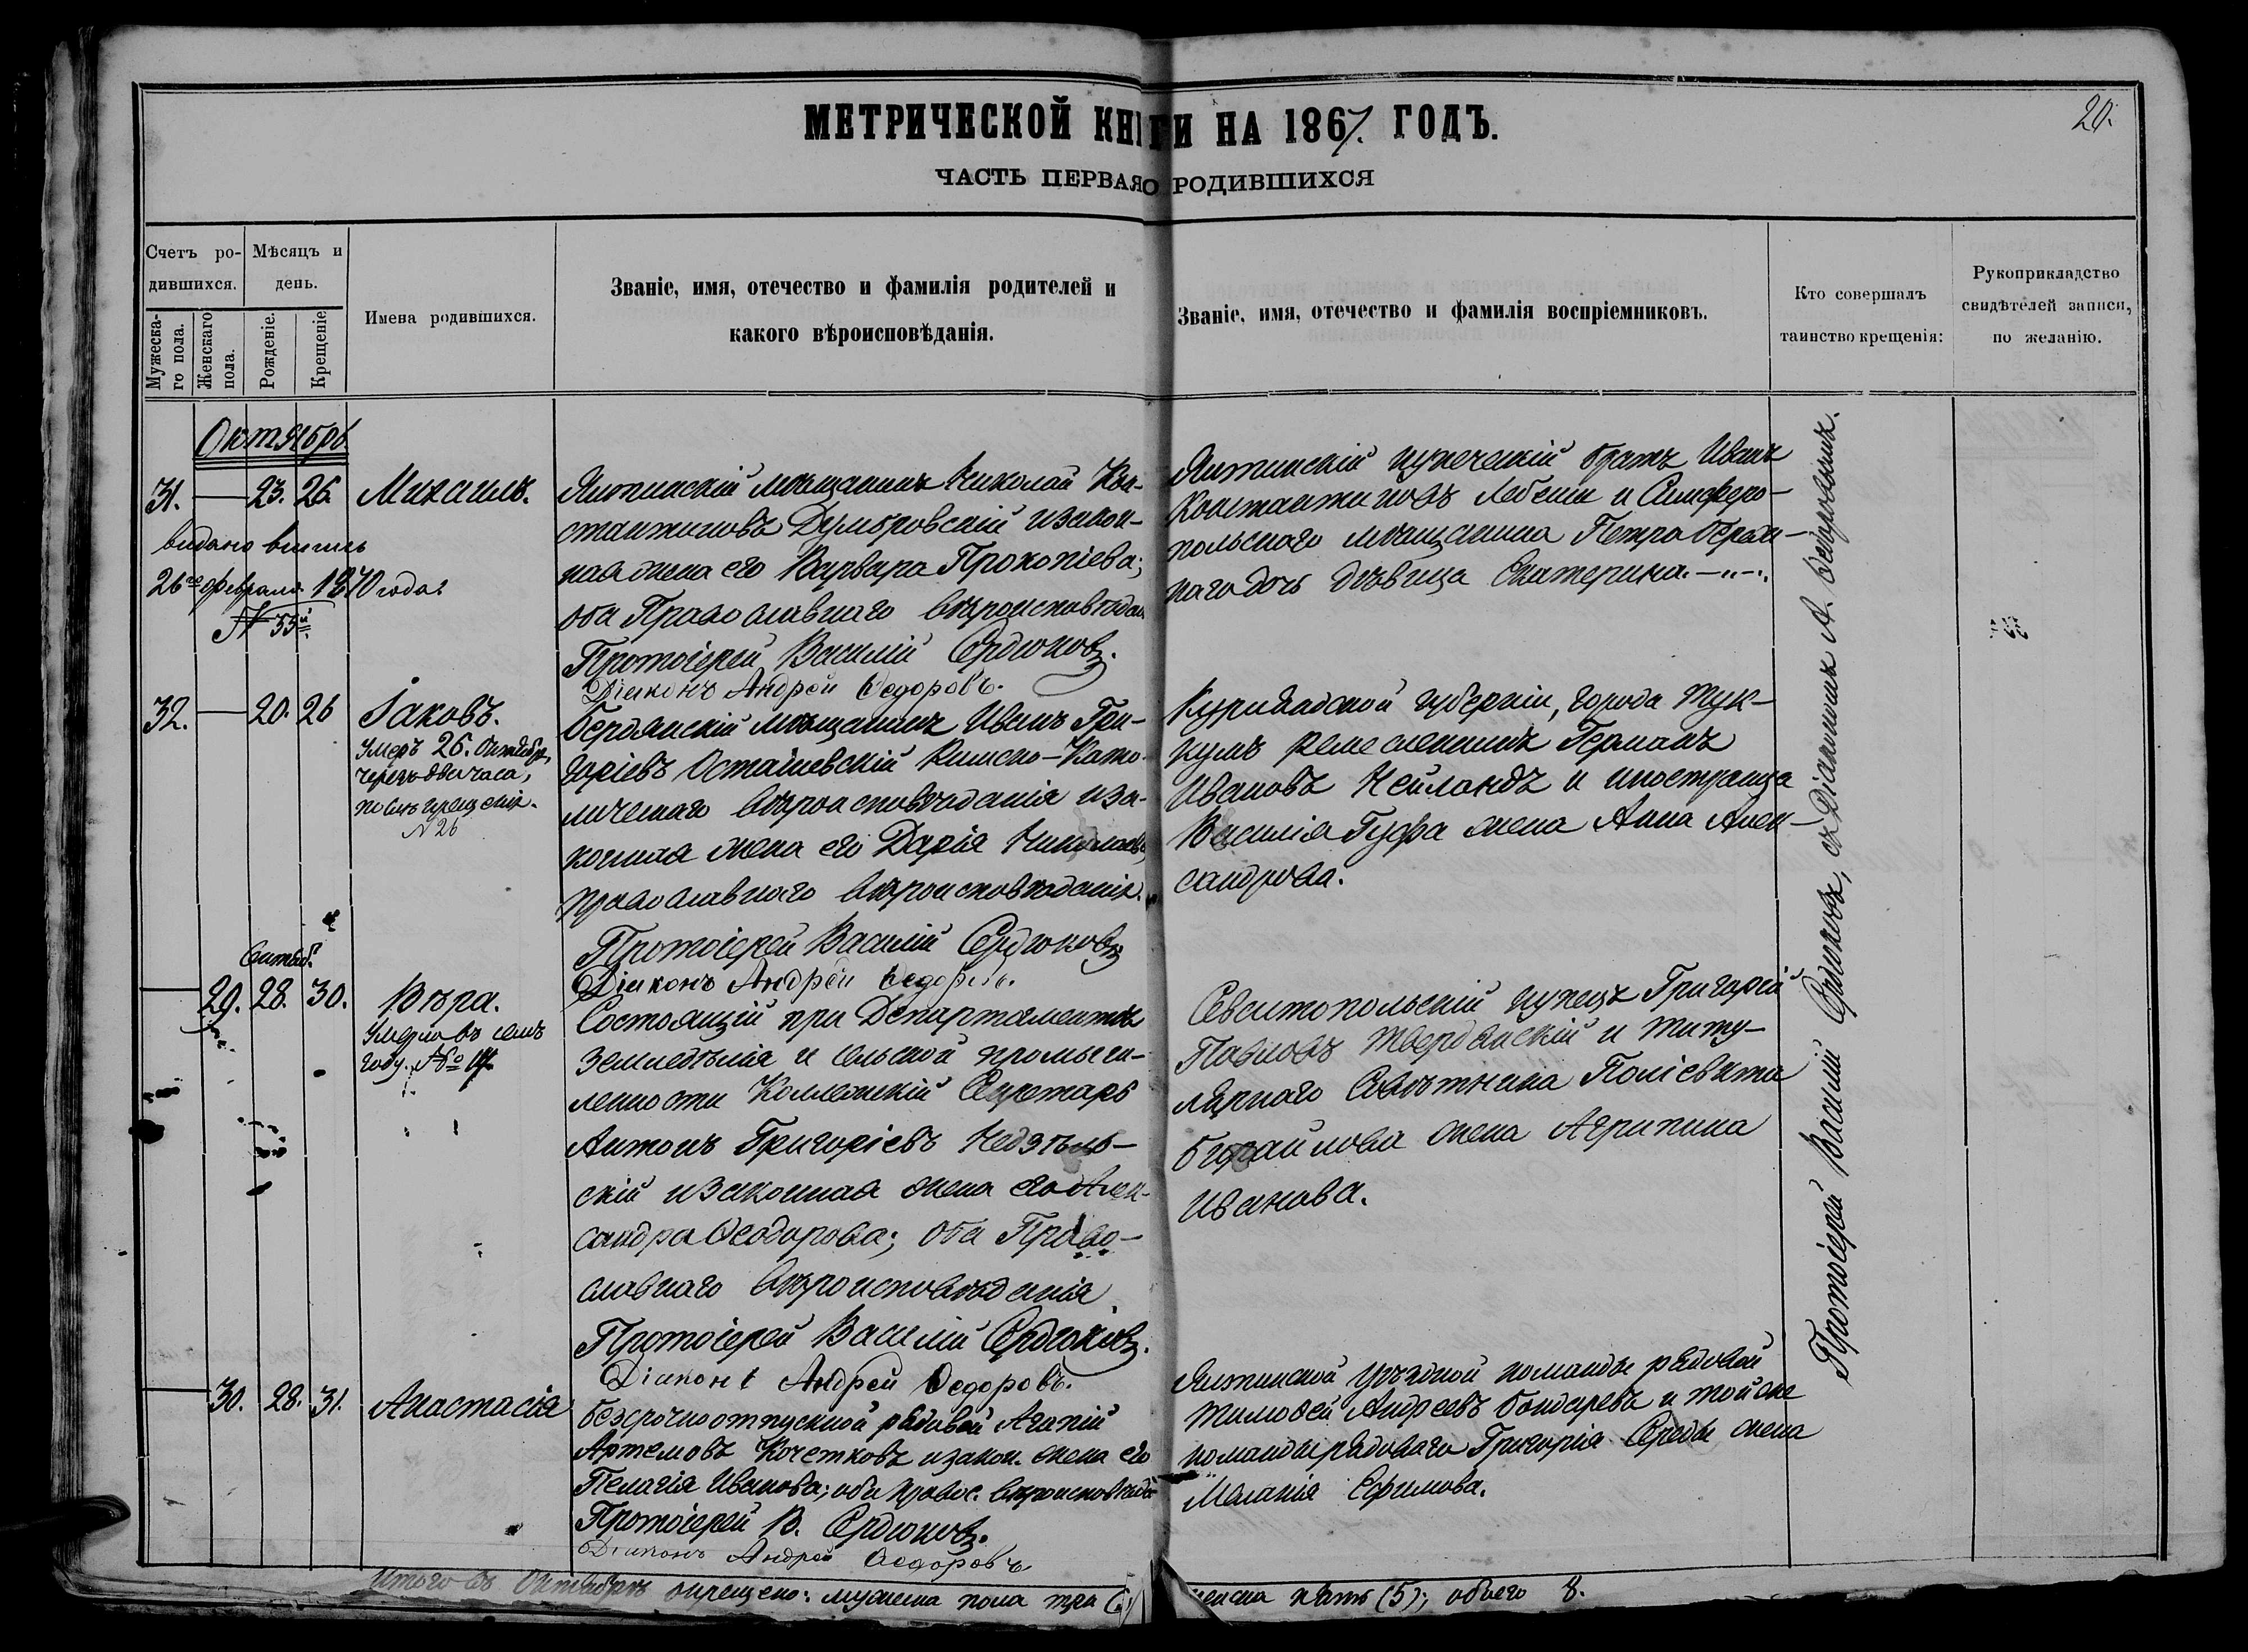 МЕТРИЧЕСКОЙ КНИГИ НА 1867. ГОДЪ.
20.
ЧАСТЬ ПЕРВАЯ О РОДИВШИХСЯ
Счетъ ро-
дившихся.
Мужеска-
го пола.
Женскаго
пола.
Мѣсяцъ и
день.
Рожденіе.
Крещеніе
Имена родившихся.
Званіе, имя, отечество и фамилія родителей и
какого вѣроисповѣданія.
Званіе, имя, отечество и фамилія воспріемниковъ.
Кто совершалъ
таинство крещенія:
Рукоприкладство
свидѣтелей записи,
по желанію.
Октябрь
31. — 23. 26. Михаилъ.
видано выпись
26го февраля 1870 года
№ 55й
Ялтинскій мѣщанинъ Николай Кон-
стантиновъ Думбровскій и закон-
ная жена его Варвара Прокопіева;
оба Православнаго вѣроисповѣдан.
Протоіерей Василій Сердюковъ.
Діаконъ Андрей Ѳедоровъ.
Ялтинскій купеческій братъ Иванъ
Константиновъ Лебеши и Симферо-
польскаго мѣщанина Петра
наго дочь дѣвица Екатерина.
32. — 20. 26 Іаковъ.
Умеръ 26. Октября,
черезъ два часа,
послѣ крещенія.
№ 26
Бердянскій мѣщанинъ Иванъ Гри-
горіевъ Осташевскій Римско-Като-
лическаго вѣроисповѣданія и за-
конная жена его Дарія Николаева,
православнаго вѣроисповѣданія.
Протоіерей Василій Сердюковъ
Діаконъ Андрей Ѳедоровъ.
Курляндской губерніи, города Тук-
кумъ ремесленникъ Германъ
Ивановъ Нейландъ и иностранца
Василія Гуфа жена Анна Алек-
сандрова.
Октяб.
— 29. 28. 30. Вѣра.
Умерла въ семъ
году. №
Состоящій при Департаментѣ
земледѣлія и сельской промыш-
ленности Коллежскій Секретарь
Антонъ Григоріевъ Недзѣль-
скій и законная жена его Алек-
сандра Ѳеодорова; оба Право-
славнаго вѣроисповѣданія.
Протоіерей Василій Сердюковъ.
Діаконъ Андрей Ѳедоровъ.
Севастопольскій купецъ Григорій
Павловъ Твердянскій и титу-
лярнаго Совѣтника Поліевкта
жена Агрипина
Иванова.
— 30. 28. 31. Анастасія
безсрочноотпускной рядовой Агапій
Артемовъ Кочетковъ и закон. жена его
Пелагія Иванова; оба правос. вѣроисповѣд.
Протоіерей В. Сердюковъ.
Діаконъ Андрей Ѳедоровъ
Ялтинской уѣздной команды рядовой
Тимоѳей Андреевъ Бондаревъ и той же
команды рядоваго Григорія Середы жена
Маланія Ефимова.
Протоіерей Василій Сердюковъ, съ Діакономъ А. Ѳедоровымъ.
Итого въ Октябрѣ окрещено: мужеска пола три
женска пять (5); обоего 8.